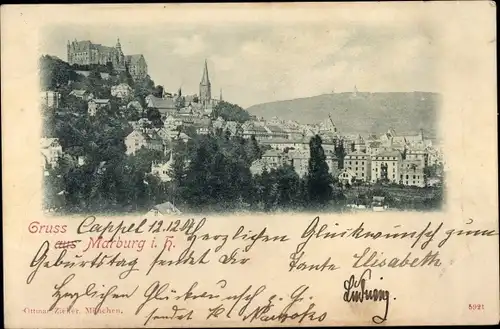 Gruss
aus Marburg i. H.
Cappel 12.12.04
Herzlichen Glückwunsch zum
Geburtstag sendet Dir
Tante Elisabeth
Ludwig.
Herzlichen Glückwunsch
sendet
Ottmar Zieher, München.
5921